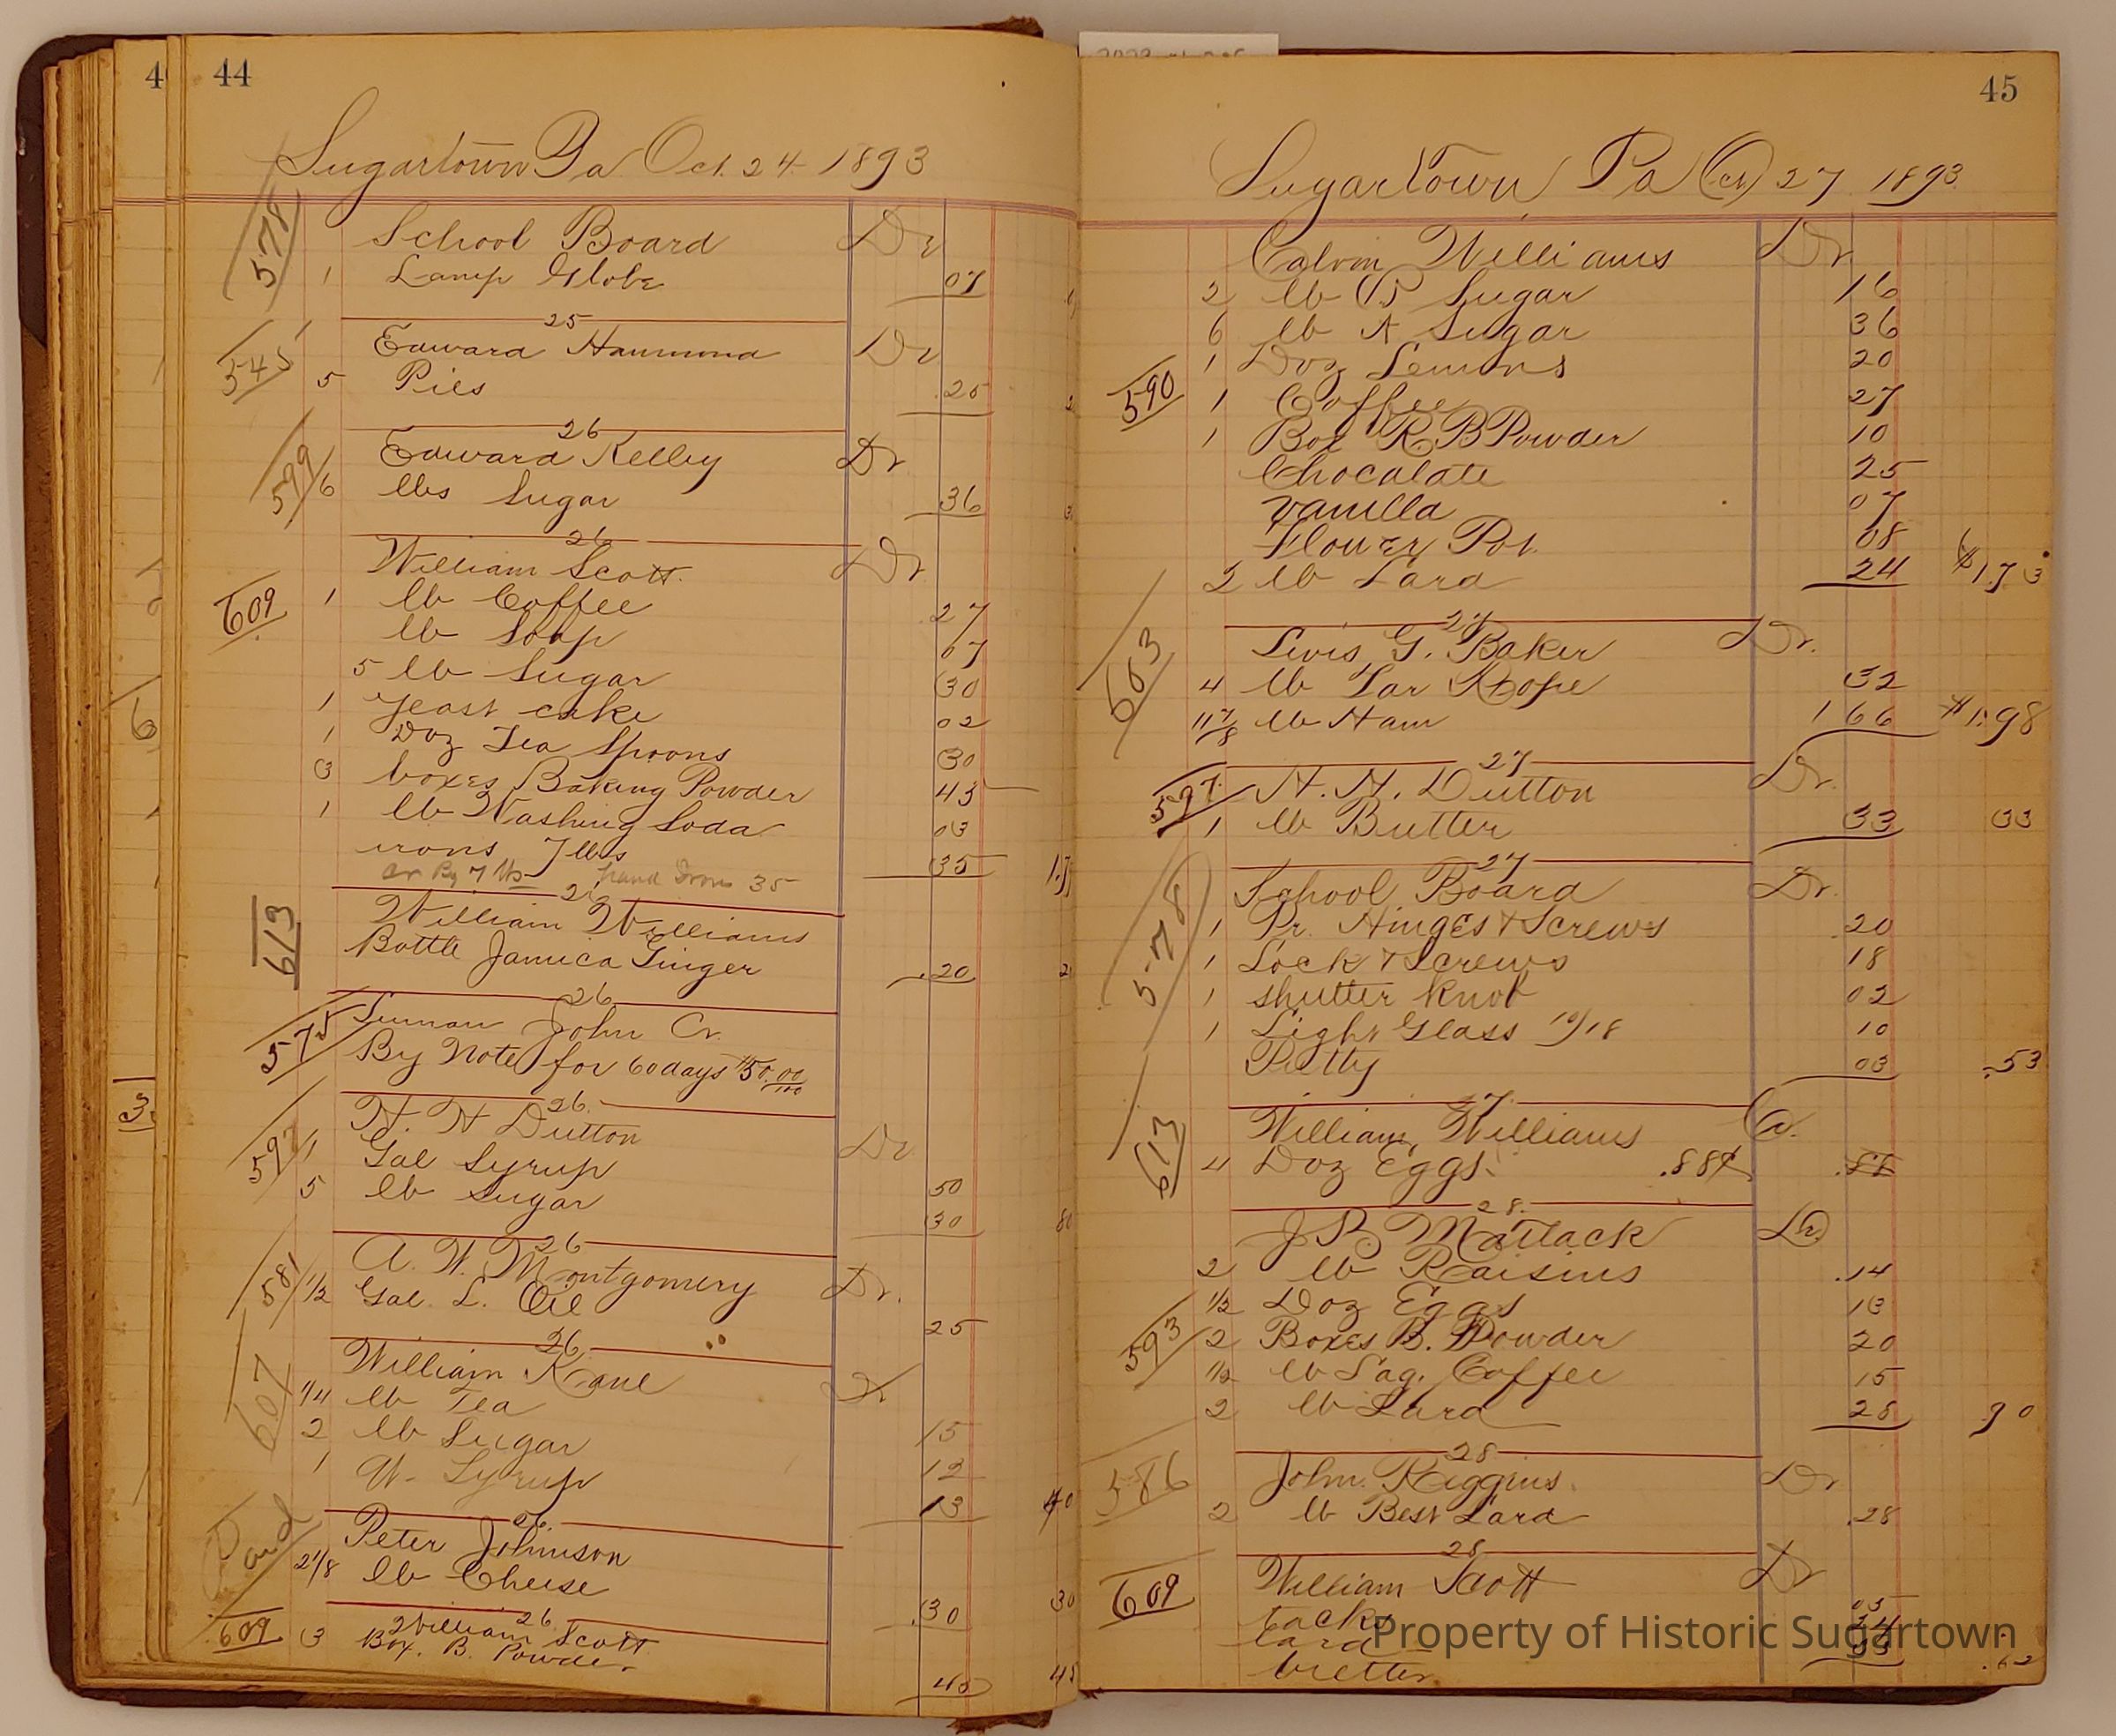 44
Sugartown Pa Oct. 24 1893
578
School Board Dr
1 Lamp Globe 07
25
545
Edward Hammond Dr
5 Pies .25
26
579
Edward Kelley Dr
6 lbs Sugar 36
26
William Scott Dr
609
1 lb Coffee 27
lb Soap 07
5 lb Sugar 30
1 yeast cake 02
1 Doz Tea Spoons 30
3 boxes Baking Powder 45
1 lb Washing Soda 03
irons 7 lbs 35
Cr By 7 lbs hand Irons 35
26
613
William Williams
Bottle Jamica Ginger .20
26
575
John Cr.
By Note for 60 days $50.00/100
26
597
N. N Dutton Dr
1 Gal Syrup 50
5 lb Sugar 30 80
26
581
A. W. Montgomery Dr.
1/2 Gal. L. Oil 25
26
607
William Kane Dr
1/4 lb Tea 15
2 lb Sugar 12
1 Syrup 13 40
26
Paid
Peter Johnson
2 1/8 lb Cheese .30 30
26
609
William Scott
3 Box. B. Powder 45 45
45
Sugartown Pa Oct 27 1893
Calvin Williams Dr
2 lb Sugar 16
6 lb A Sugar 36
1 Doz Lemons 20
590
1 Coffee 27
1 Box R B Powder 10
Chocalate 25
Vanilla 07
Flower Pot 08
2 lb Lard 24 $1.73
27
603
Lewis G. Baker Dr.
4 lb Tar Rope 32
11 7/8 lb Ham 1 66 $1.98
27
597
N. N. Dutton Dr
1 lb Butter 33 33
27
578
School Board Dr.
1 Pr. Hinges & Screws 20
1 Lock & Screws 18
1 shutter knob 02
1 Light Glass 10/18 10
Putty 03 .53
27
613
William Williams Cr.
4 Doz Eggs. .88¢
28
J B Matlack Dr
2 lb Raisins .14
1/2 Doz Eggs 13
593
2 Boxes B. Powder 20
1/2 lb Lag. Coffee 15
2 lb Lard 28 .90
28
586
John Riggins. Dr
2 lb Best Lard .28
28
609
William Scott Dr
tacks 05
Lard 24
butter 33 .62
Property of Historic Sugartown